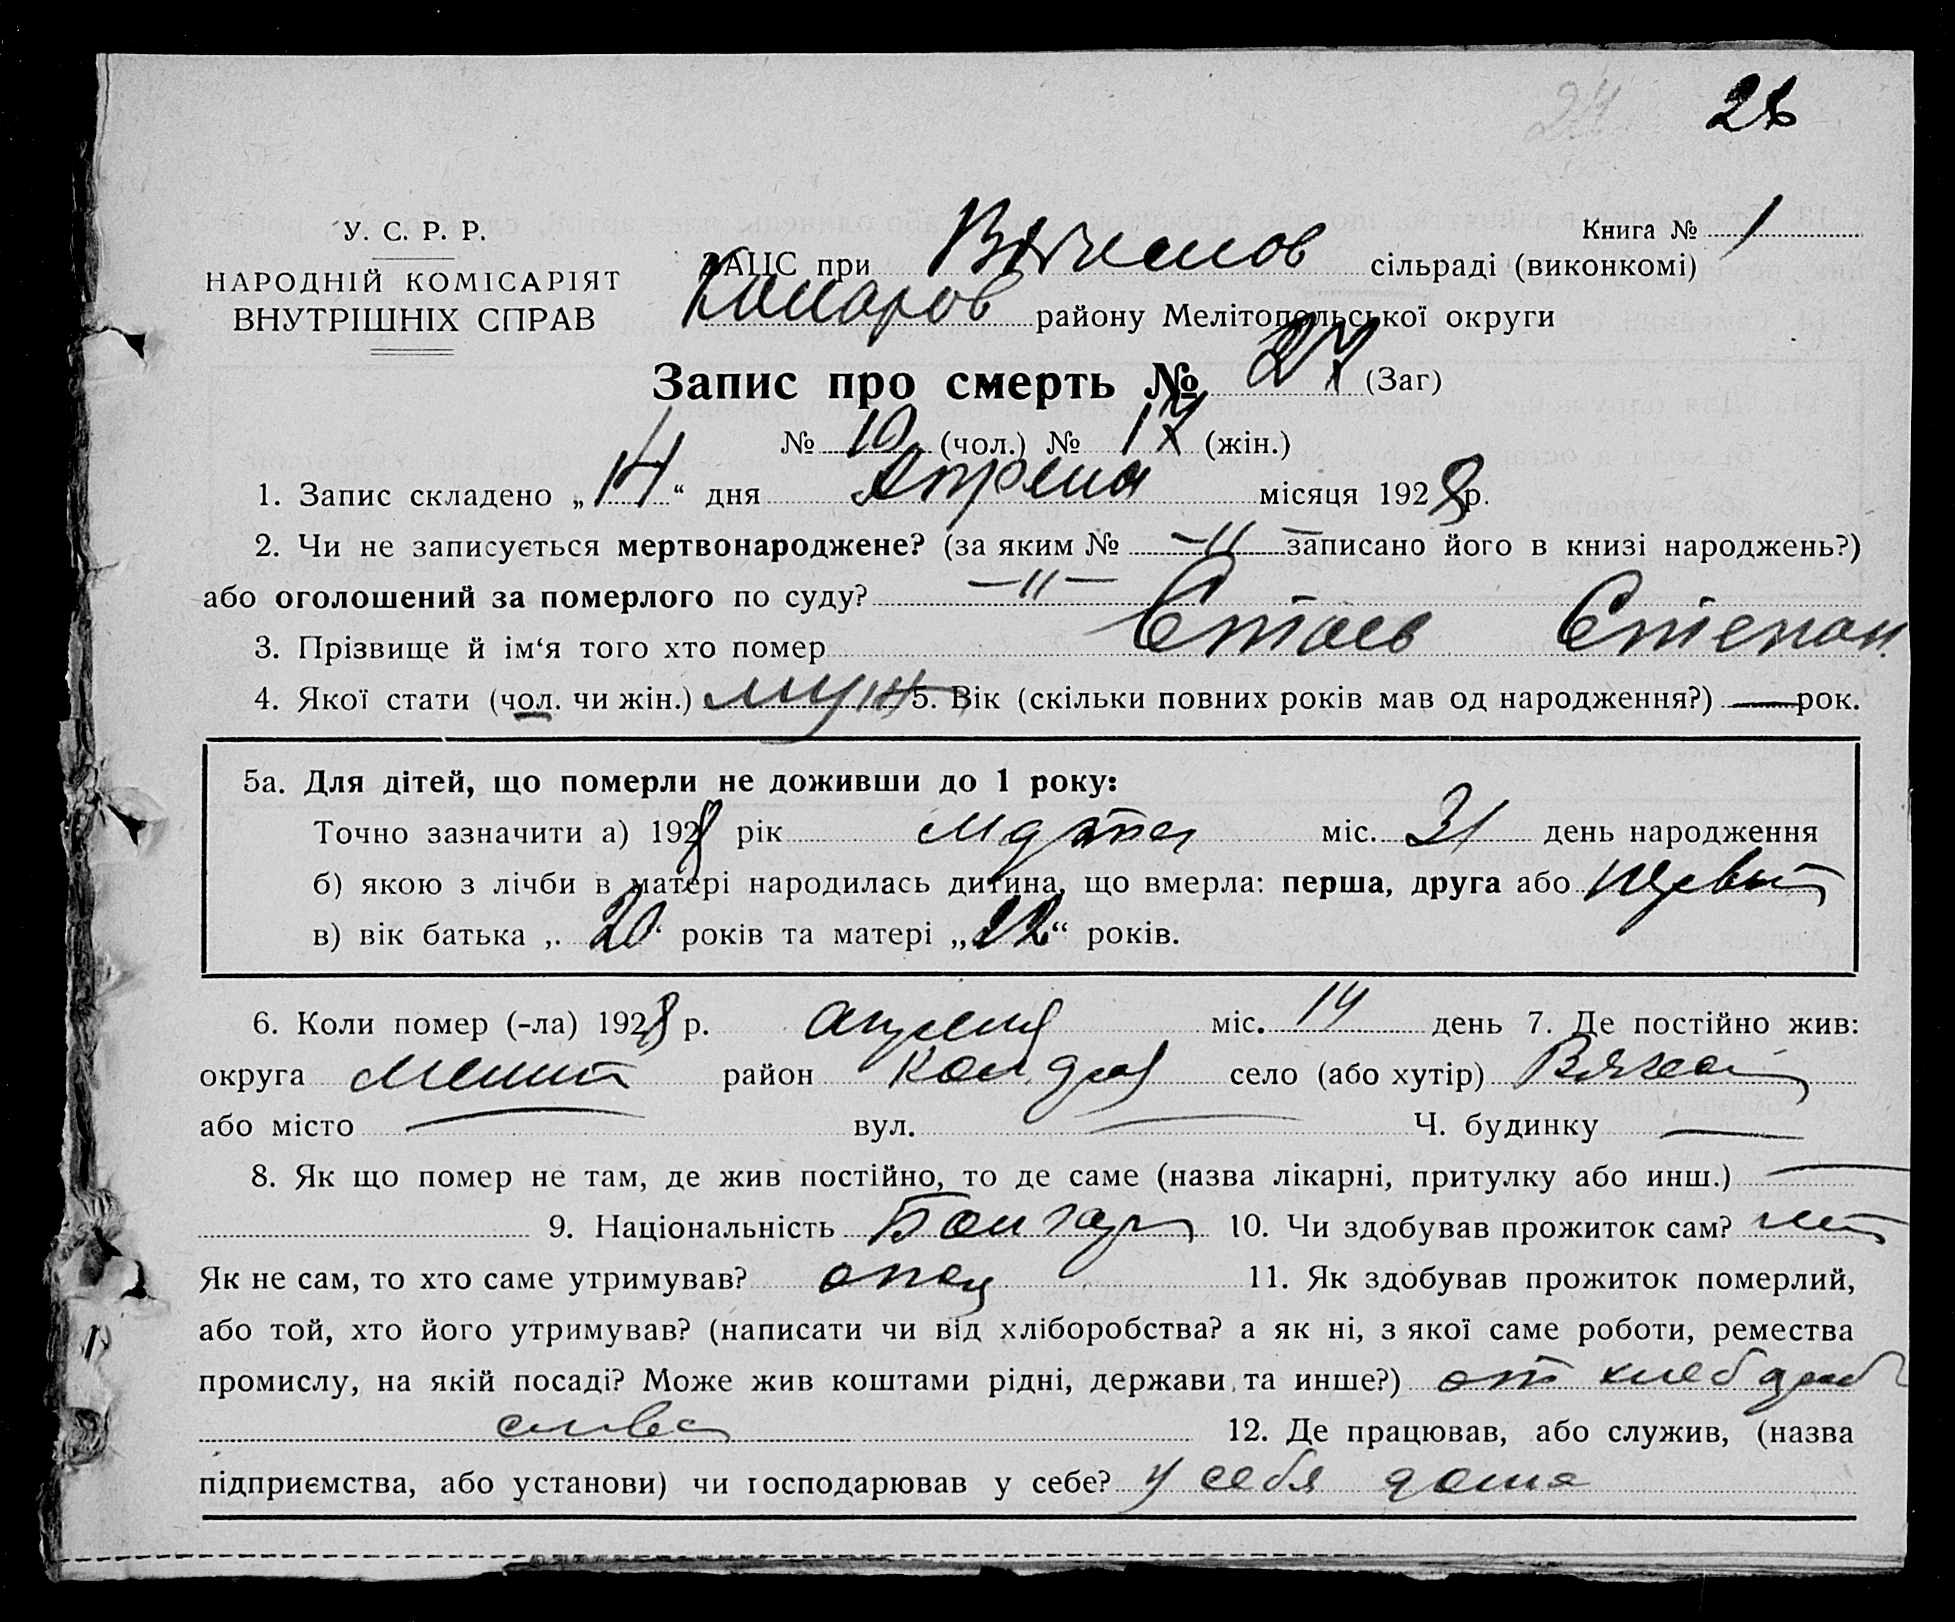 24 26
У. С. Р. Р.
НАРОДНІЙ КОМІСАРІЯТ
ВНУТРІШНІХ СПРАВ
Книга № 1
ЗАГС при сільраді (виконкомі)
району Мелітопольської округи
Запис про смерть № 27 (Заг)
№ 10 (чол.) № 17 (жін.)
1. Запис складено „14“ дня Апреля місяця 1928 р.
2. Чи не записується мертвонароджене? (за яким № —"— записано його в книзі народжень?)
або оголошений за померлого по суду? —"—
3. Прізвище й ім‘я того хто помер Степан
4. Якої стати (чол. чи жін.) муж 5. Вік (скільки повних років мав од народження?) — рок.
5а. Для дітей, що померли не доживши до 1 року:
Точно зазначити а) 1928 рік марта міс. 31 день народження
б) якою з лічби в матері народилась дитина, що вмерла: перша, друга або первый
в) вік батька „20“ років та матері „22“ років.
6. Коли помер (-ла) 1928 р. апреля міс. 14 день 7. Де постійно жив:
округа Мелит район село (або хутір)
або місто — вул. — Ч. будинку —
8. Як що помер не там, де жив постійно, то де саме (назва лікарні, притулку або инш.) —
9. Національність Болгар 10. Чи здобував прожиток сам? нет
Як не сам, то хто саме утримував? отец 11. Як здобував прожиток померлий,
або той, хто його утримував? (написати чи від хліборобства? а як ні, з якої саме роботи, ремества
промислу, на якій посаді? Може жив коштами рідні, держави, та инше?) от хлебороб
ства 12. Де працював, або служив, (назва
підприємства, або установи) чи господарював у себе? у себя дома